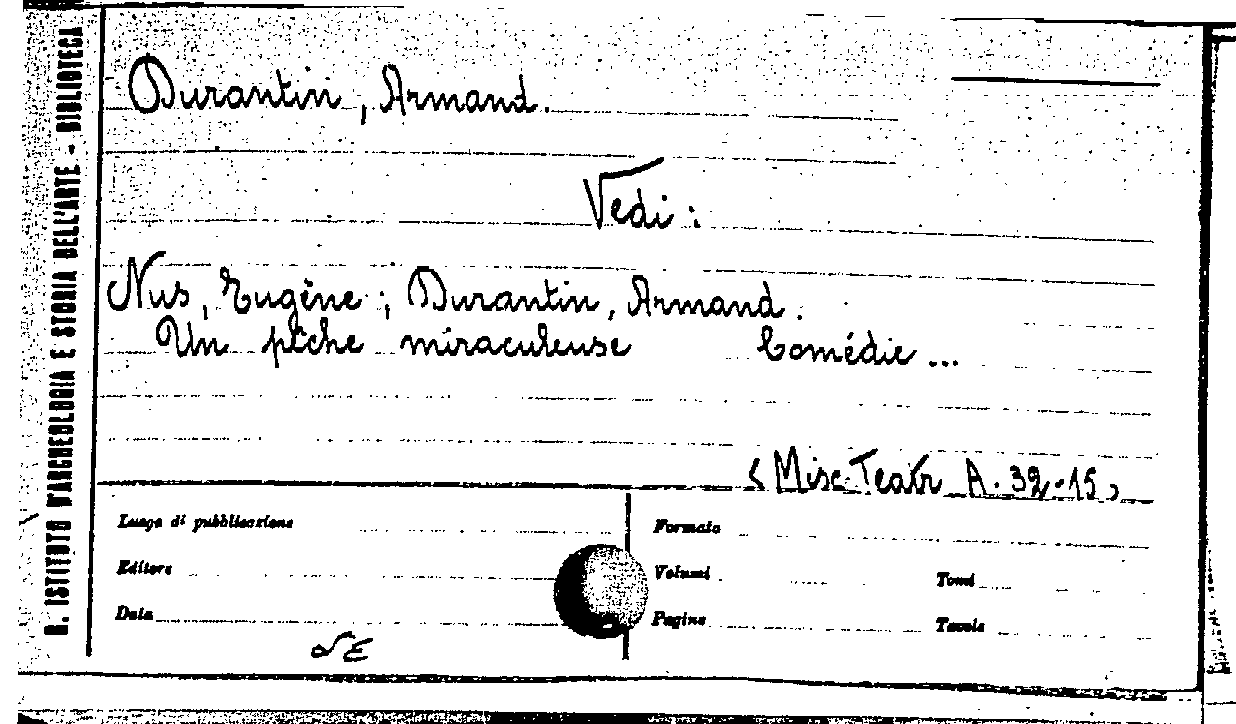 R. ISTITUTO D'ARCHEOLOGIA E STORIA DELL'ARTE - BIBLIOTECA
Durantin, Armand.
Vedi:
Nus, Eugène; Durantin, Armand.
Un pêche miraculeuse Comédie...
(Misc. Teatr A. 32.15)
Luogo di pubblicazione
Formato
Editore
Volumi
Tomi
Data
Pagine
Tavole